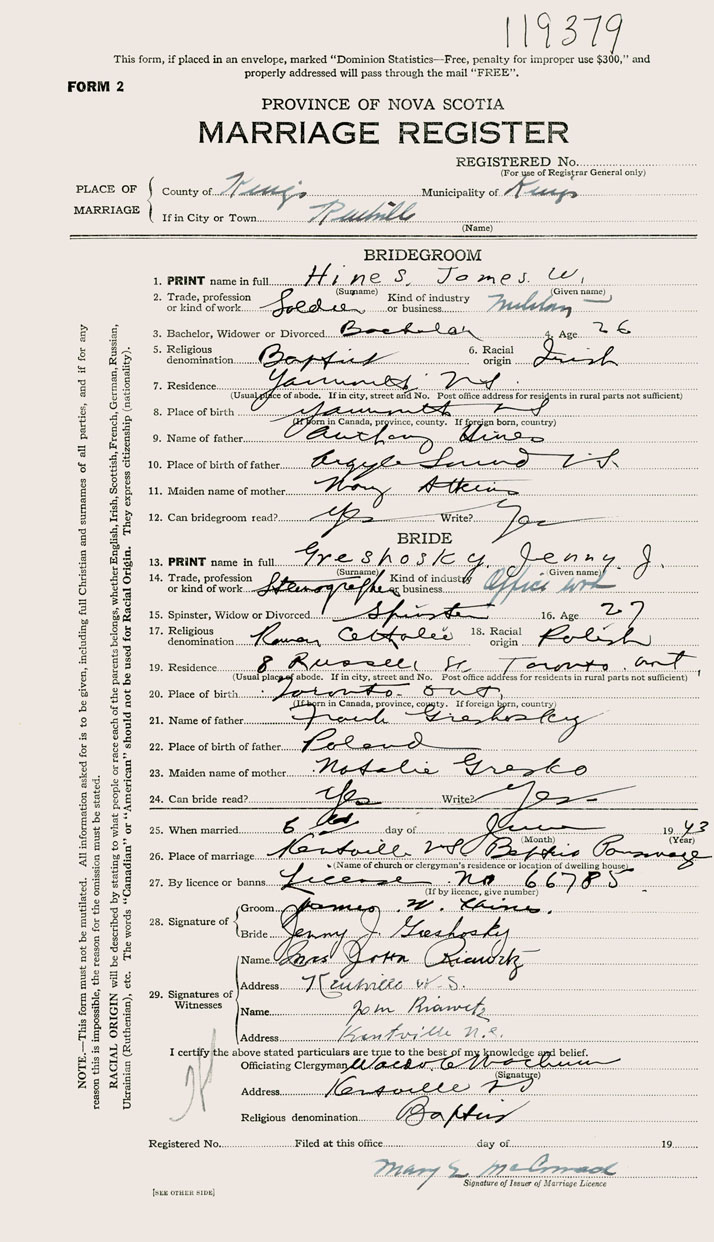 119379
This form, if placed in an envelope, marked "Dominion Statistics—Free, penalty for improper use $300," and
properly addressed will pass through the mail "FREE".
FORM 2
PROVINCE OF NOVA SCOTIA
MARRIAGE REGISTER
REGISTERED No.
(For use of Registrar General only)
PLACE OF MARRIAGE
County of Kings Municipality of Kings
If in City or Town
(Name)
BRIDEGROOM
1. PRINT name in full Hines, James W.
(Surname) (Given name)
2. Trade, profession or kind of work Soldier Kind of industry or business Military
3. Bachelor, Widower or Divorced Bachelor 4. Age 26
5. Religious denomination Baptist 6. Racial origin Irish
7. Residence Yarmouth N S
(Usual place of abode. If in city, street and No. Post office address for residents in rural parts not sufficient)
8. Place of birth Yarmouth N S
(If born in Canada, province, county. If foreign born, country)
9. Name of father Anthony Hines
10. Place of birth of father Argyle Sound N.S.
11. Maiden name of mother Atkins
12. Can bridegroom read? Yes Write? Yes
BRIDE
13. PRINT name in full Greshosky, Jenny J.
(Surname) (Given name)
14. Trade, profession or kind of work Stenographer Kind of industry or business Office work
15. Spinster, Widow or Divorced Spinster 16. Age 27
17. Religious denomination Roman Catholic 18. Racial origin Polish
19. Residence 8 Russell St Toronto. Ont,
(Usual place of abode. If in city, street and No. Post office address for residents in rural parts not sufficient)
20. Place of birth Toronto Ont,
(If born in Canada, province, county. If foreign born, country)
21. Name of father Frank Greshosky
22. Place of birth of father Poland
23. Maiden name of mother Natalie Gresko
24. Can bride read? Yes Write? Yes
25. When married 6 day of June 1943
(Month) (Year)
26. Place of marriage Kentville N S Baptist Parsonage
(Name of church or clergyman's residence or location of dwelling house)
27. By licence or banns License No 66785
(If by licence, give number)
28. Signature of
Groom James W. Hines.
Bride Jenny J. Greshosky
29. Signatures of Witnesses
Name Mrs John
Address Kentville N.S.
Name
Address Kentville N.S.
I certify the above stated particulars are true to the best of my knowledge and belief.
Officiating Clergyman
(Signature)
Address Kentville N S
Religious denomination Baptist
Registered No. Filed at this office day of 19
Signature of Issuer of Marriage Licence
[SEE OTHER SIDE]
NOTE.—This form must not be mutilated. All information asked for is to be given, including full Christian and surnames of all parties, and if for any
reason this is impossible, the reason for the omission must be stated.
RACIAL ORIGIN will be described by stating to what people or race each of the parents belongs, whether English, Irish, Scottish, French, German, Russian,
Ukrainian (Ruthenian), etc. The words "Canadian" or "American" should not be used for Racial Origin. They express citizenship (nationality).